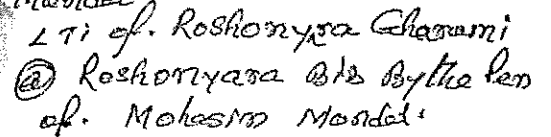 LTi of. Roshonyara Gharami
@ Roshonyara Bib By the Pen
of. Mohasim Mondal.